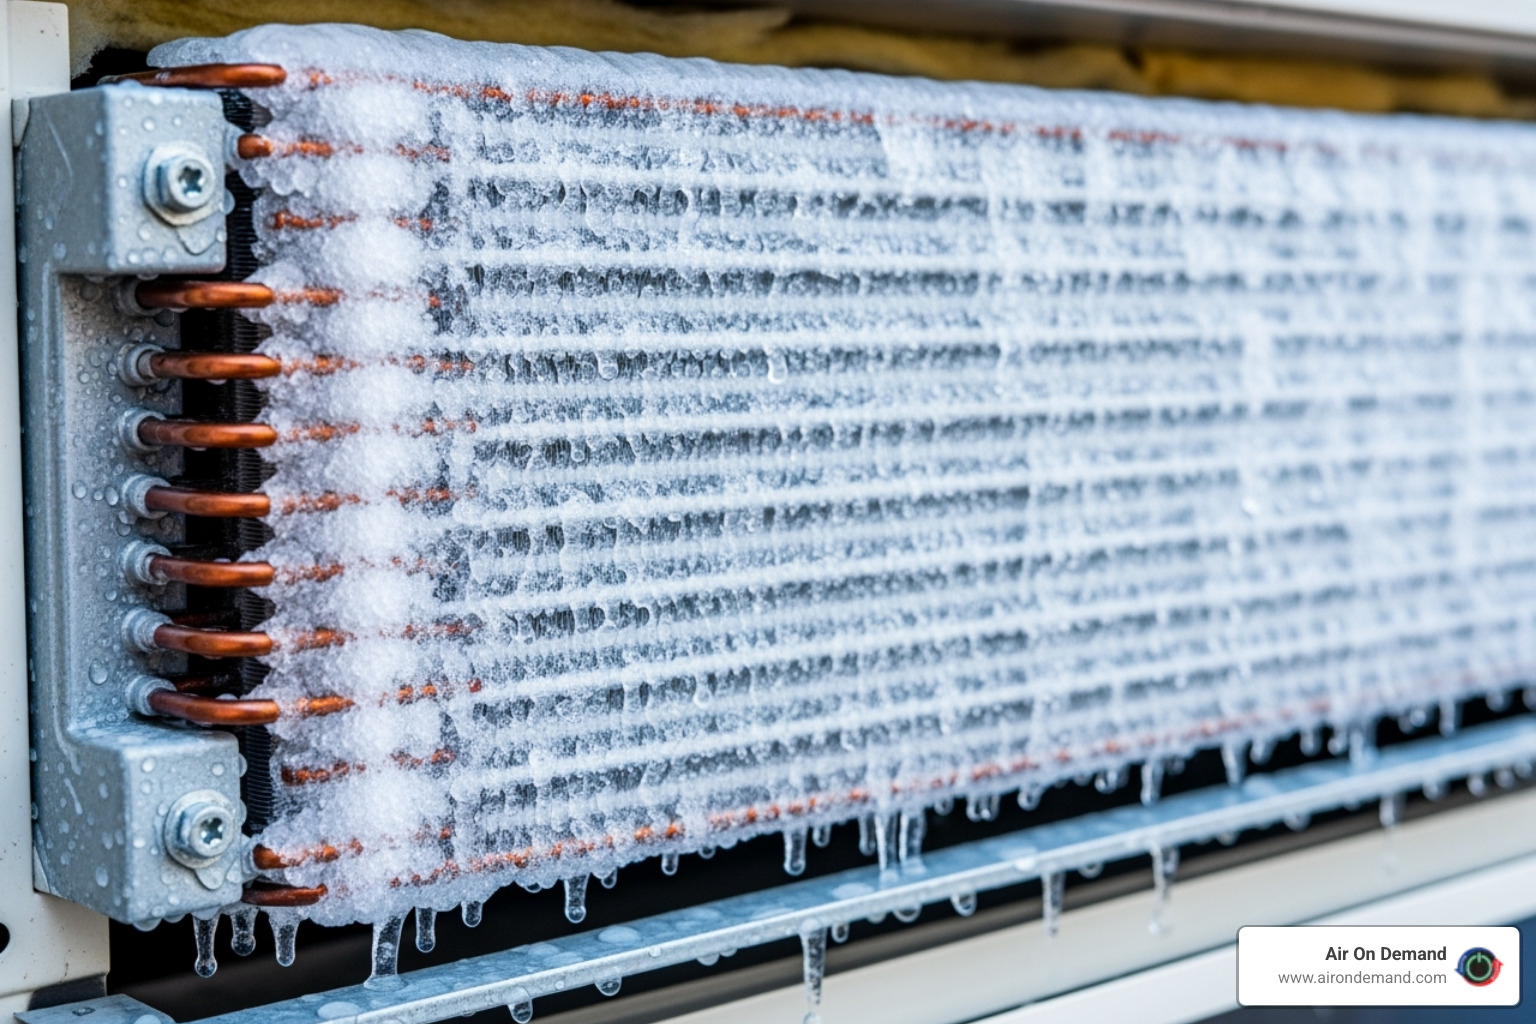 Air On Demand
www.airondemand.com